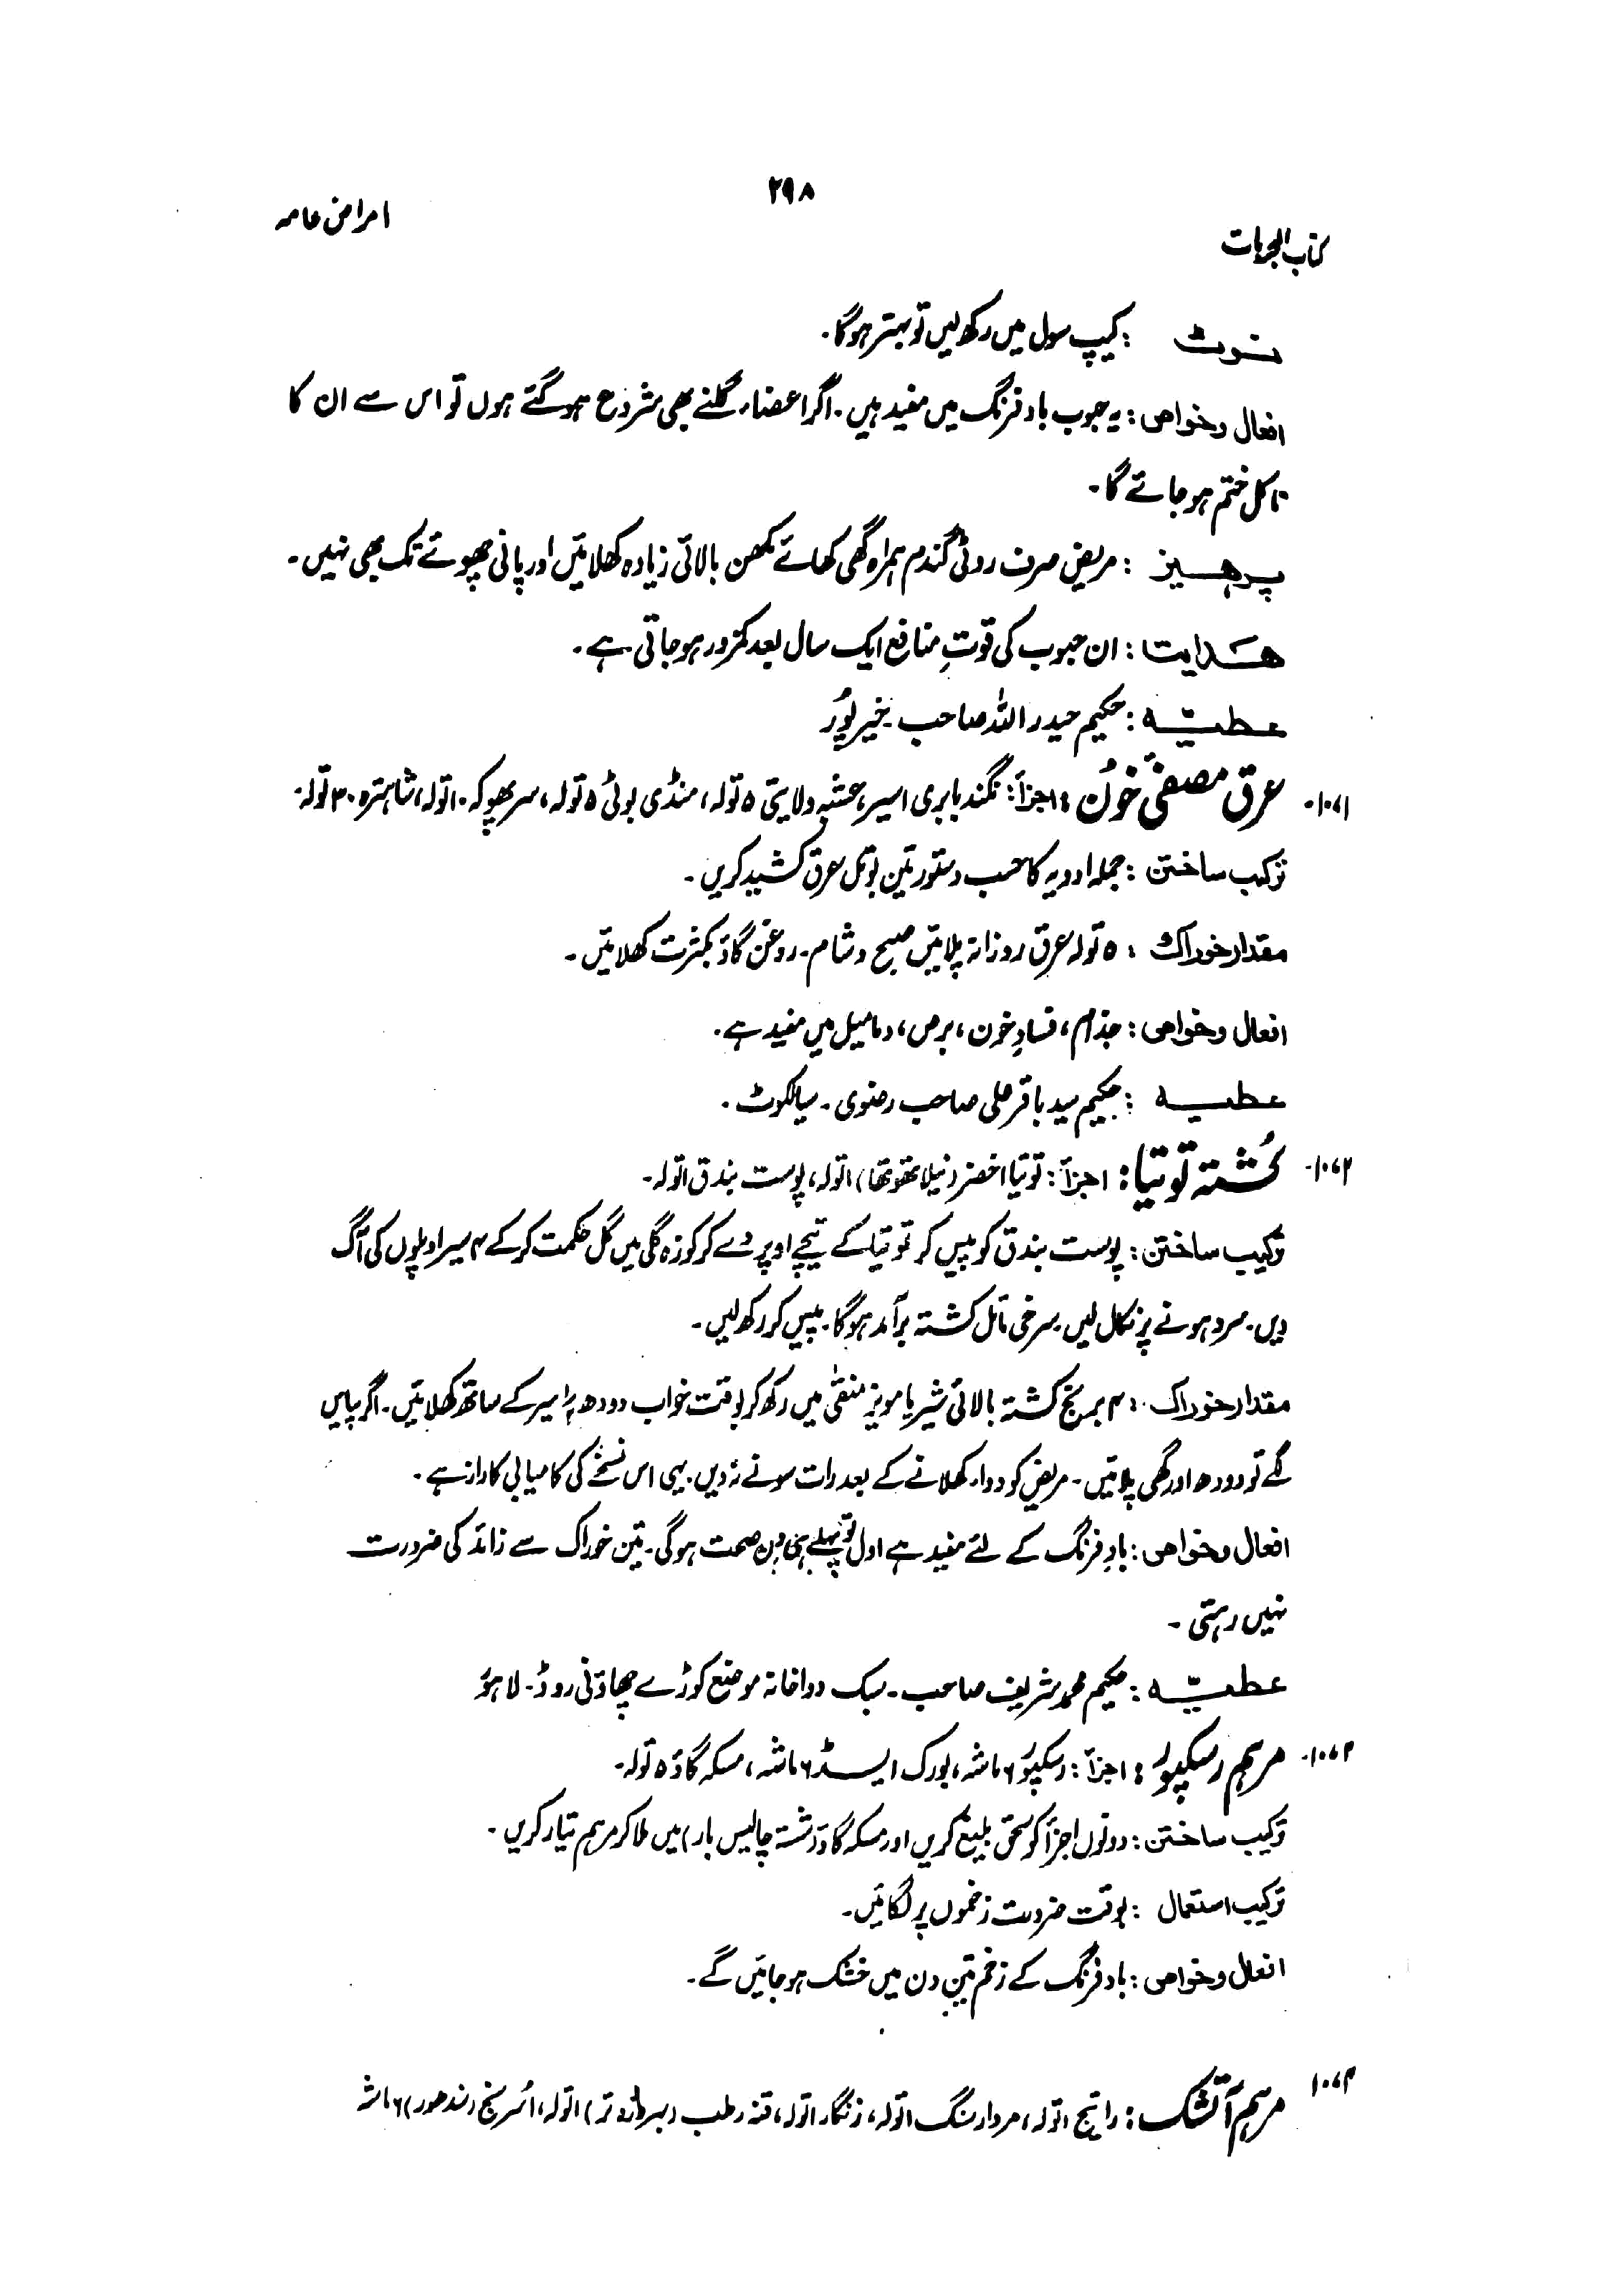 ۲۹۸
امراض عامہ
کتاب المجربات
نوٹ : کیپ سول میں رکھ لیں تو بہتر ہوگا۔
افعال و خواص : یہ حبوب باد فرنگ میں مفید ہیں۔ اگر اعضاء گلنے بھی شروع ہو گئے ہوں تو اس سے ان کا
تاکل ختم ہو جائے گا۔
پرہیز : مریض صرف روٹی گندم ہمراہ گھی کھائے مکھن بالائی زیادہ کھلائیں اور پانی چھوئے تک بھی نہیں۔
ھدایت : ان حبوب کی قوتِ منافع ایک سال بعد کمزور ہو جاتی ہے۔
عطیّہ : حکیم حیدر اللہ صاحب خیرپور
۱۰۷۱۔ عرق مصفیٰ خوُن : اجزأ : نگند بابری اسیر، عشبہ ولایتی ۵ تولہ، منڈی بوٹی ۵ تولہ، سرپھوکہ ۱۰ تولہ، شاہترہ ۳۰ تولہ۔
ترکیب ساختن : جملہ ادویہ کا حسب دستور تین بوتل عرق کشید کریں۔
مقدار خوراک : ۵ تولہ عرق روزانہ پلائیں صبح و شام۔ روغن گاؤ بکثرت کھلائیں۔
افعال و خواص : جذام، فسادِ خون، برص، دمامیل میں مفید ہے۔
عطیہ : حکیم سید باقر علی صاحب رضوی۔ سیالکوٹ۔
۱۰۷۲۔ کُشتہ توتیا : اجزأ : توتیا اخضر (نیلا تھوتھا) ۱ تولہ، پوست بندق ۱ تولہ۔
ترکیب ساختن : پوست بندق کو پیس کر توتیا کے نیچے اوپر دے کر کوزہ گلی میں گل حکمت کر کے ۴ سیر اوپلوں کی آگ
دیں۔ سرد ہونے پر نکال لیں۔ سرخی مائل کشتہ برآمد ہوگا۔ پیس کر رکھ لیں۔
مقدار خوراک : ۴ برنج کشتہ بالائی شیر یا مویز منقیٰ میں رکھ کر بوقت خواب دودھ سیر کے ساتھ کھلائیں۔ اگر پیاس
لگے تو دودھ اور گھی پلائیں۔ مریض کو دواء کھلانے کے بعد رات سونے نہ دیں۔ یہی اس نسخے کی کامیابی کا راز ہے۔
افعال و خواص : بادِ فرنگ کے لئے مفید ہے اول تو پہلے ہی دن صحت ہوگی۔ تین خوراک سے زائد کی ضرورت
نہیں رہتی۔
عطیّہ : حکیم محمد شریف صاحب۔ سبک دواخانہ موضع کوڑے چھاؤنی روڈ۔ لاہوُ
۱۰۷۳۔ مرہم رسکپور : اجزأ : رسکپوُر ۶ ماشہ، بورک ایسڈ ۶ ماشہ، مسکہ گاؤ ۵ تولہ۔
ترکیب ساختن : دونوں اجزأ کو سحق بلیغ کریں اور مسکہ گاؤ (شستہ چالیس بار) میں ملا کر مرہم تیار کریں۔
ترکیب استعمال : بوقت ضرورت زخموں پر لگائیں۔
افعال و خواص : باد فرنگ کے زخم تین دن میں خشک ہو جائیں گے۔
۱۰۷۴ مرہم آتشک : راتینج ۱ تولہ، مردارسنگ ۱ تولہ، زنگار ۱ تولہ، قنہ رطب (بیروزہ تر) ۱ تولہ، اُسرنج (سندھور) ۶ ماشہ